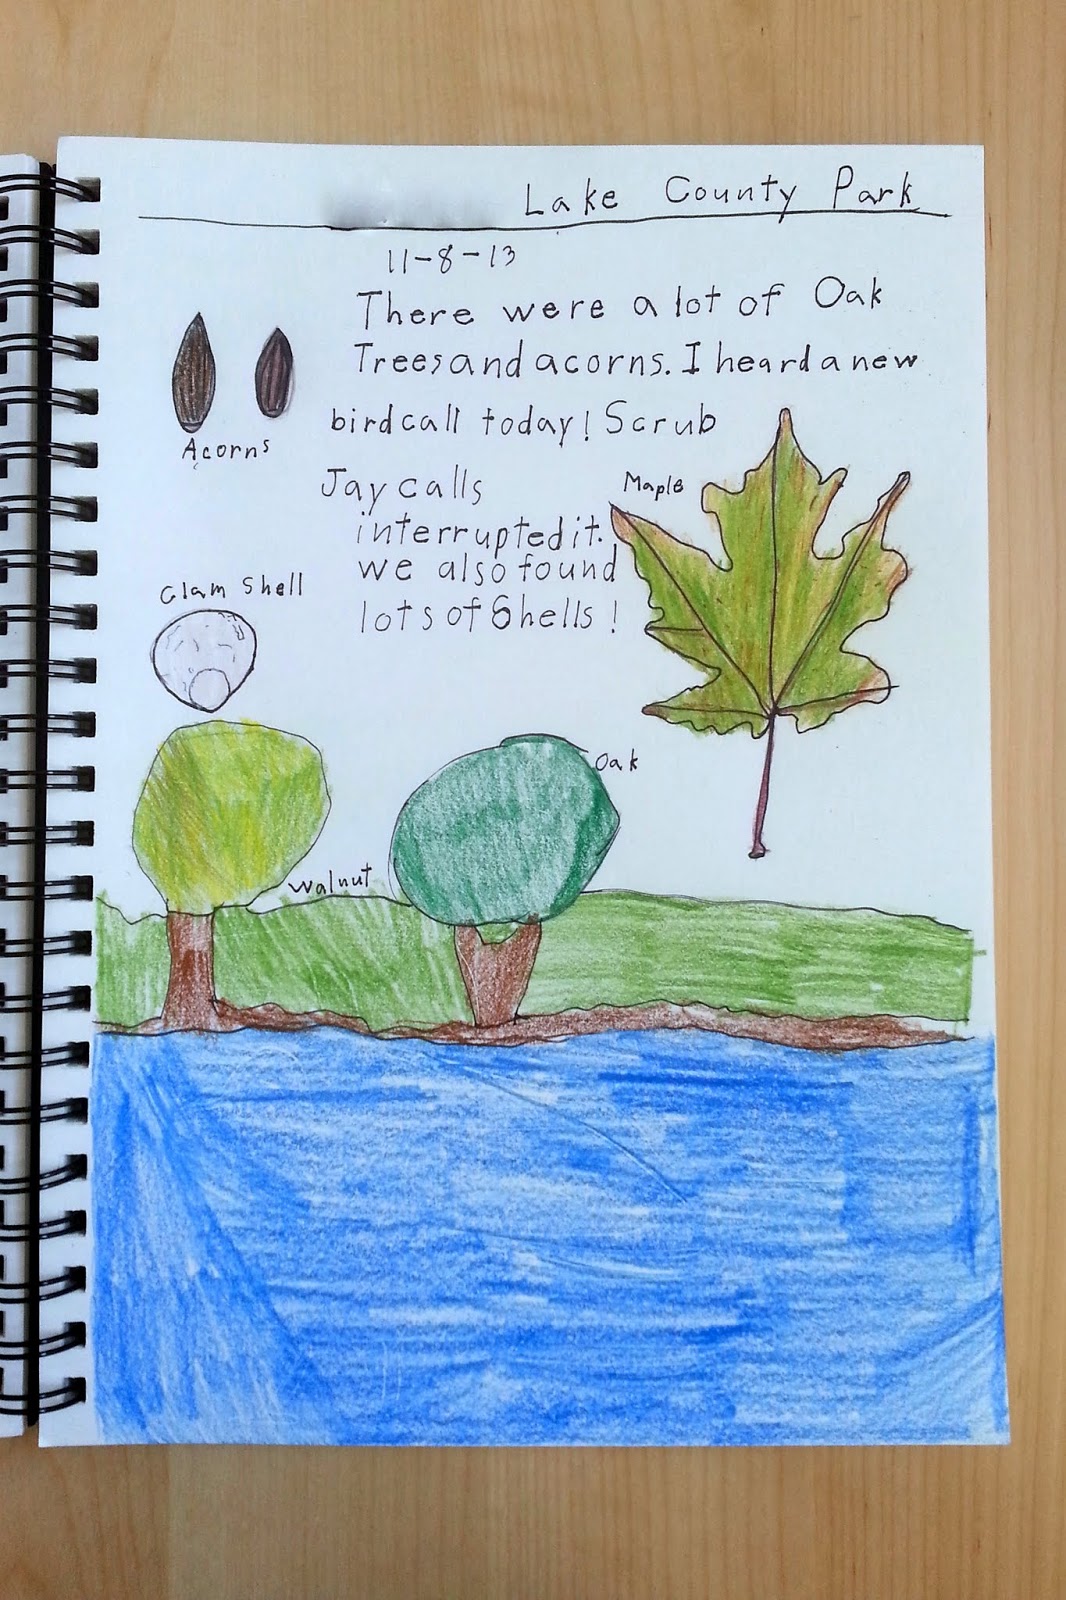 Lake County Park
11-8-13
There were a lot of Oak
Trees and acorns. I heard a new
bird call today! Scrub
Jay calls
interrupted it.
we also found
lots of Shells!
Acorns
Maple
Clam Shell
Oak
Walnut